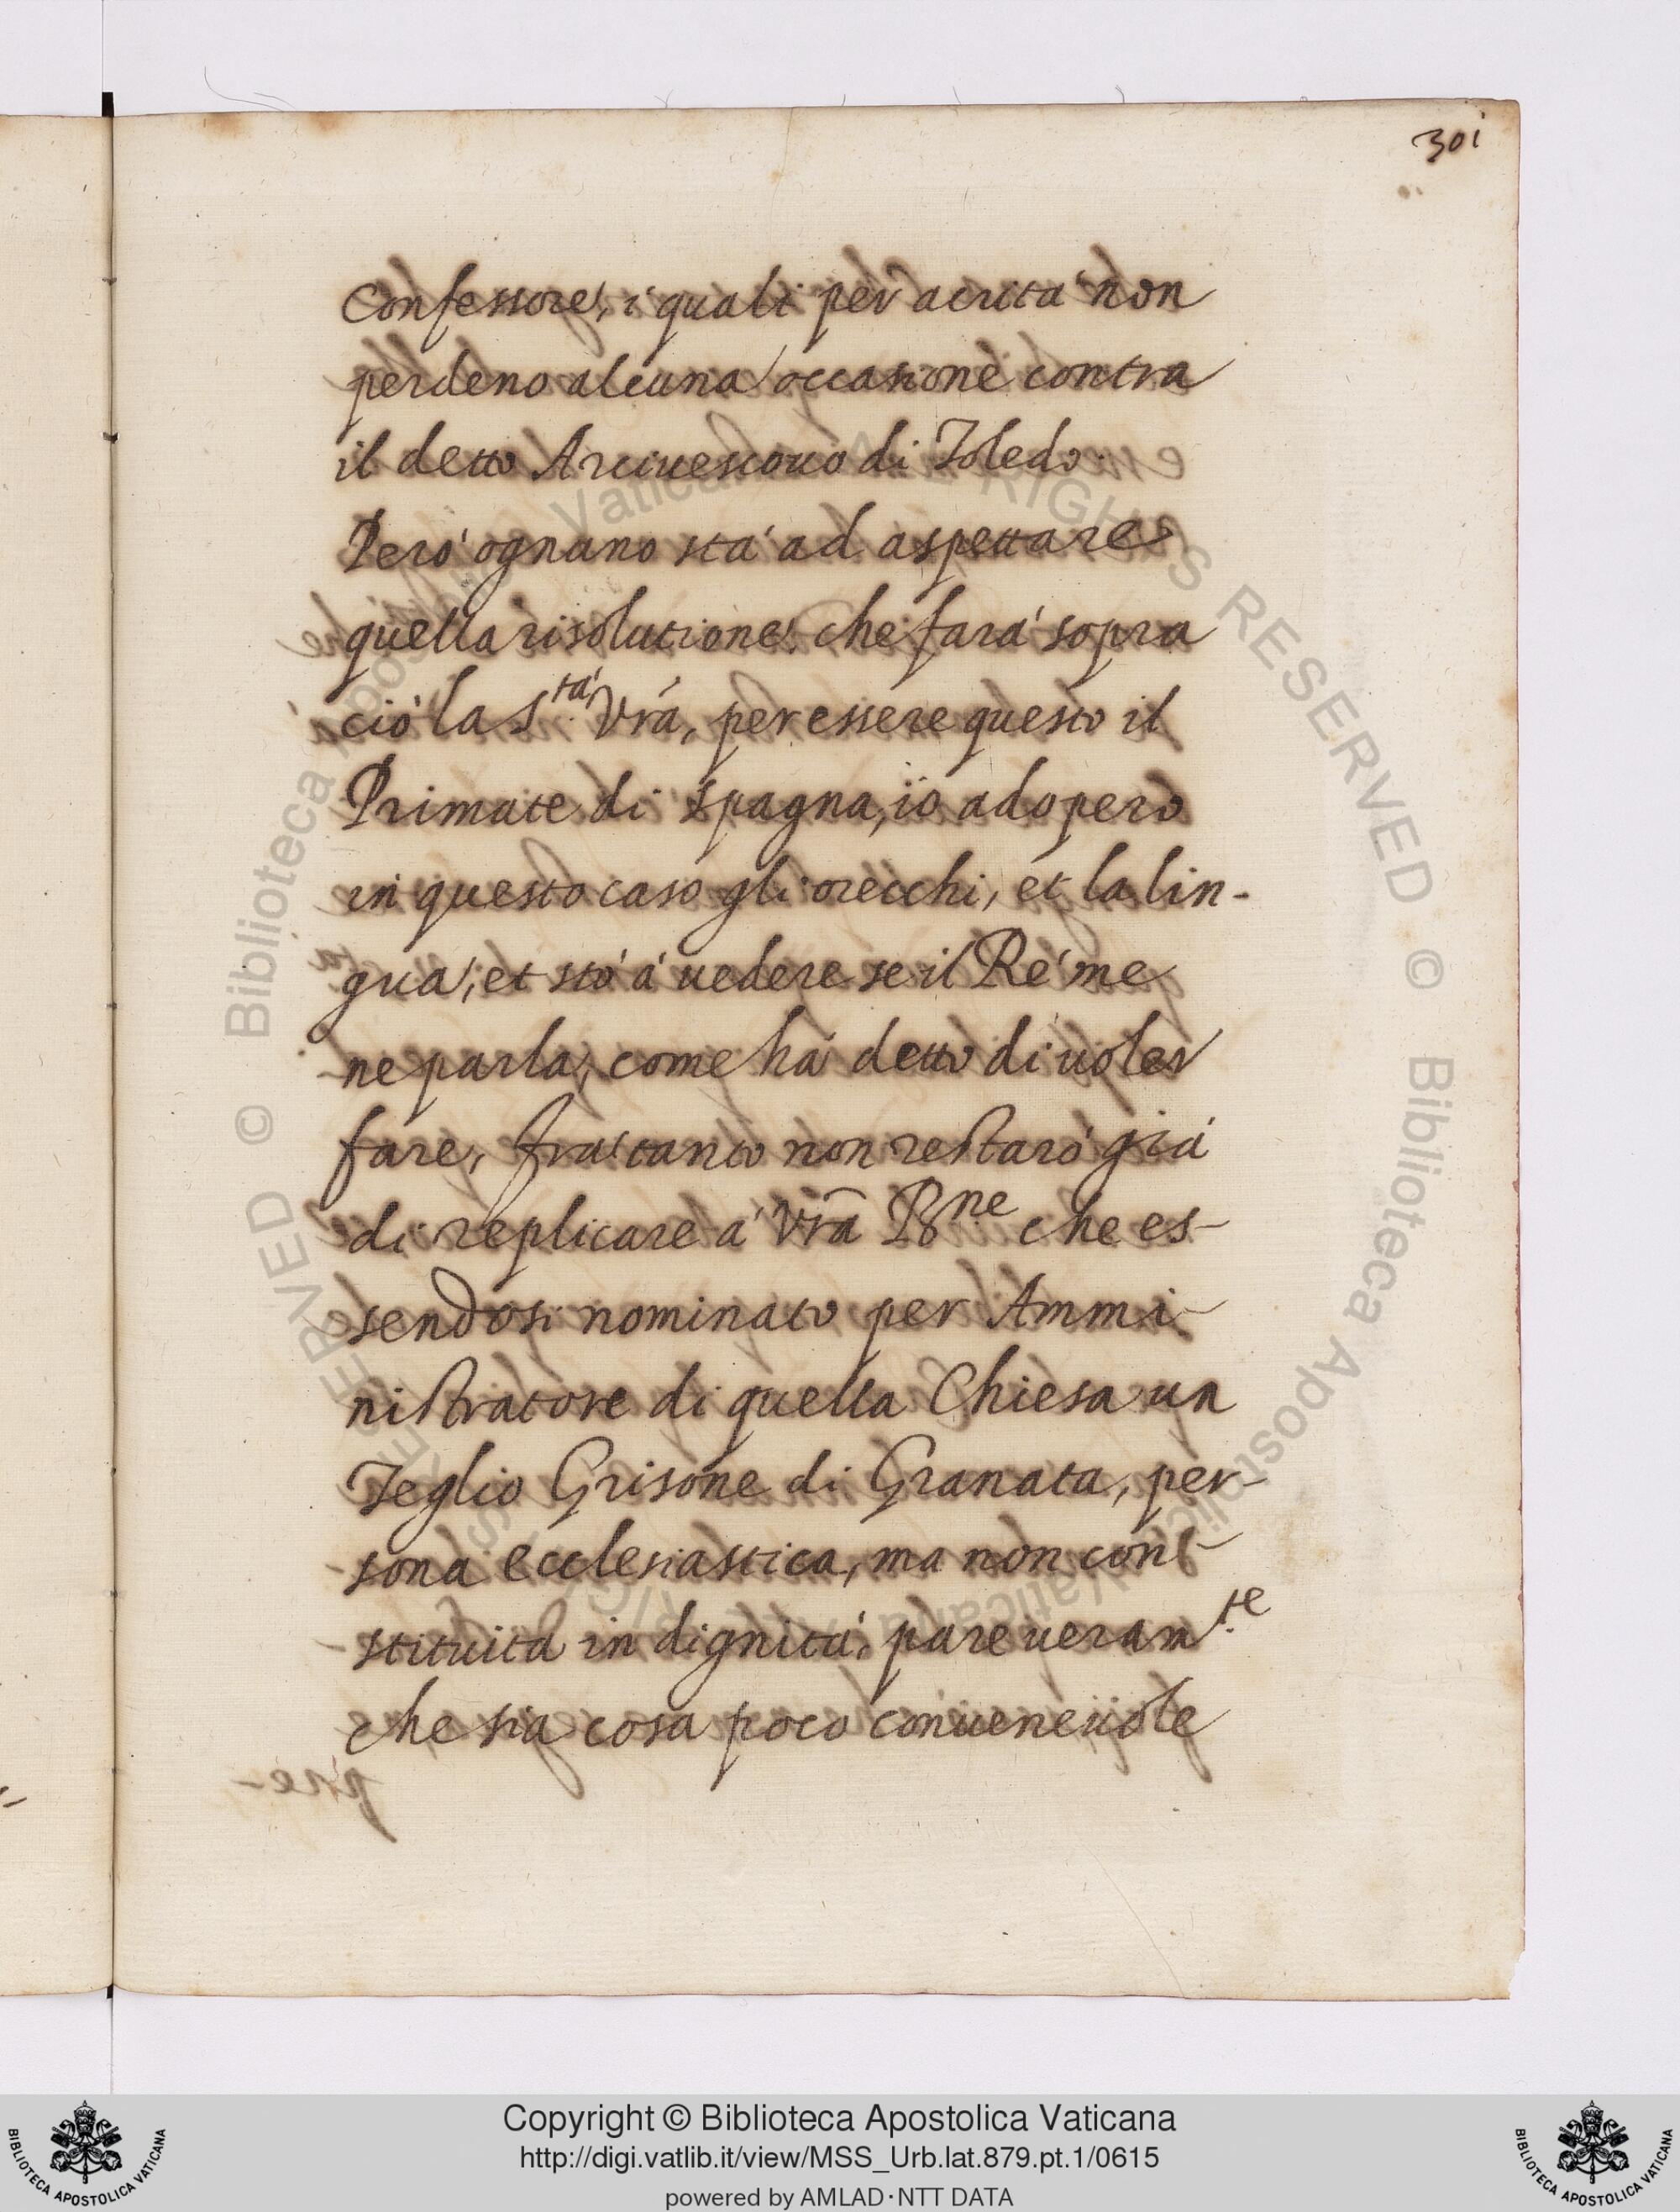 301
Confessore, i quali per acrità non
perdeno alcuna occasione contra
il detto Arciuescouo di Toledo.
Però ognuno stà ad aspettare
quella risolutione, che farà sopra
ciò la S.tà Vra, per essere questo il
Primate di Spagna, io adopero
in questo caso gli orecchi, et la lin-
gua, et stò à uedere se il Rè me
ne parla, come hà detto di uoler
fare, fra tanto non restarò già
di replicare à Vra Bne che es-
sendosi nominato per Ammi-
nistratore di quella Chiesa un
Teglio Grisone di Granata, per-
sona ecclesiastica, ma non con-
stituita in dignità, pare ueram.te
che sia cosa poco conueneuole
Copyright © Biblioteca Apostolica Vaticana
http://digi.vatlib.it/view/MSS_Urb.lat.879.pt.1/0615
powered by AMLAD·NTT DATA